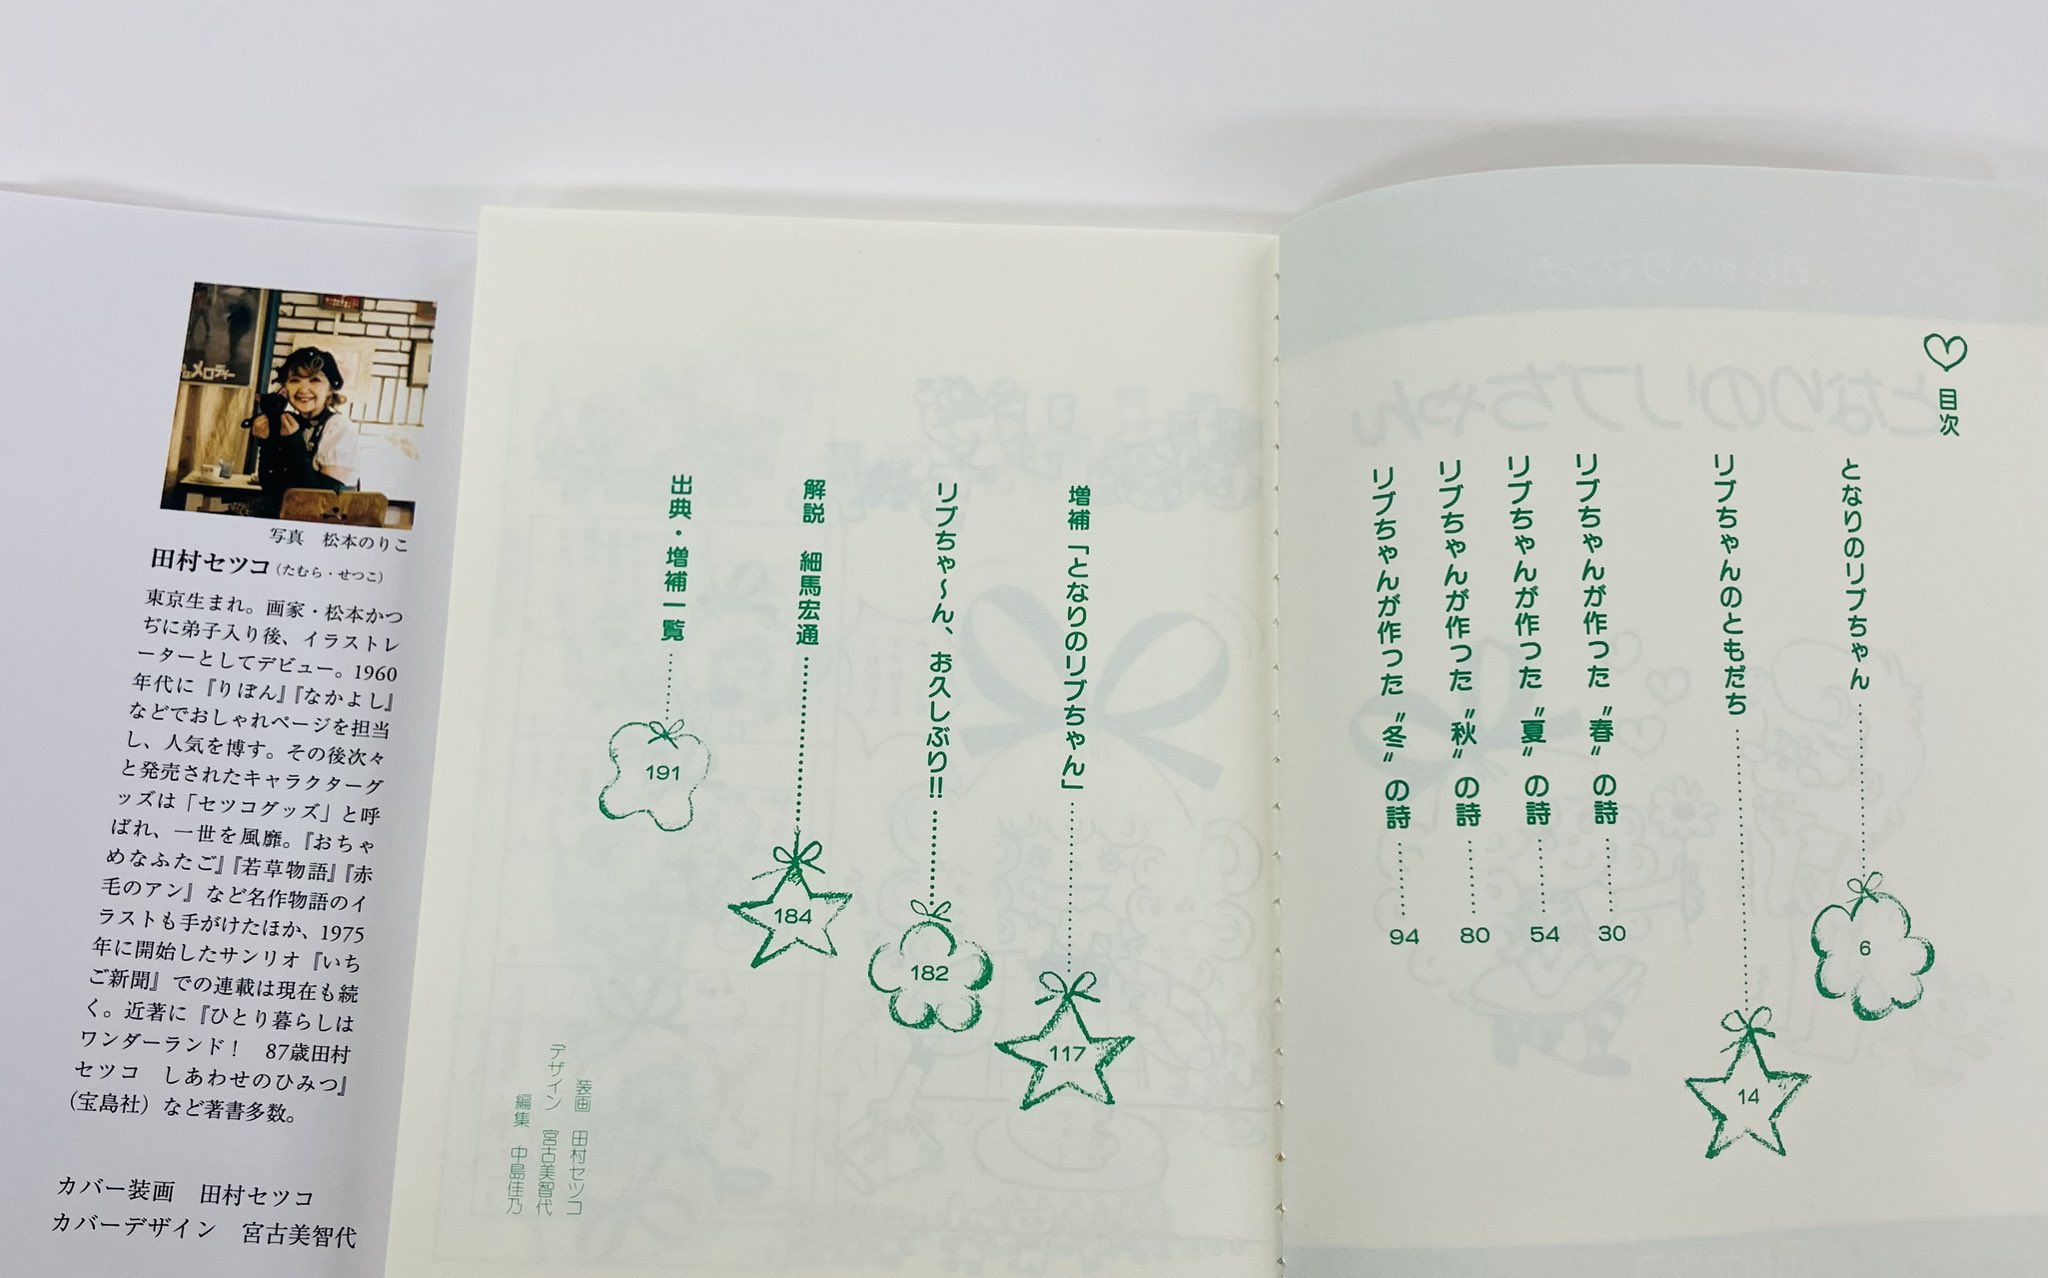 目次
となりのリブちゃん 6
リブちゃんのともだち 14
リブちゃんが作った〝春〟の詩 30
リブちゃんが作った〝夏〟の詩 54
リブちゃんが作った〝秋〟の詩 80
リブちゃんが作った〝冬〟の詩 94
増補「となりのリブちゃん」 117
リブちゃ〜ん、お久しぶり!! 182
解説 細馬宏通 184
出典・増補一覧 191
装画 田村セツコ
デザイン 宮古美智代
編集 中島佳乃
メロディー
写真 松本のりこ
田村セツコ(たむら・せつこ)
東京生まれ。画家・松本かつ
ぢに弟子入り後、イラストレ
ーターとしてデビュー。1960
年代に『りぼん』『なかよし』
などでおしゃれページを担当
し、人気を博す。その後次々
と発売されたキャラクターグ
ッズは「セツコグッズ」と呼
ばれ、一世を風靡。『おちゃ
めなふたご』『若草物語』『赤
毛のアン』など名作物語のイ
ラストも手がけたほか、1975
年に開始したサンリオ『いち
ご新聞』での連載は現在も続
く。近著に『ひとり暮らしは
ワンダーランド! 87歳田村
セツコ しあわせのひみつ』
(宝島社)など著書多数。
カバー装画 田村セツコ
カバーデザイン 宮古美智代
となりのリブちゃん